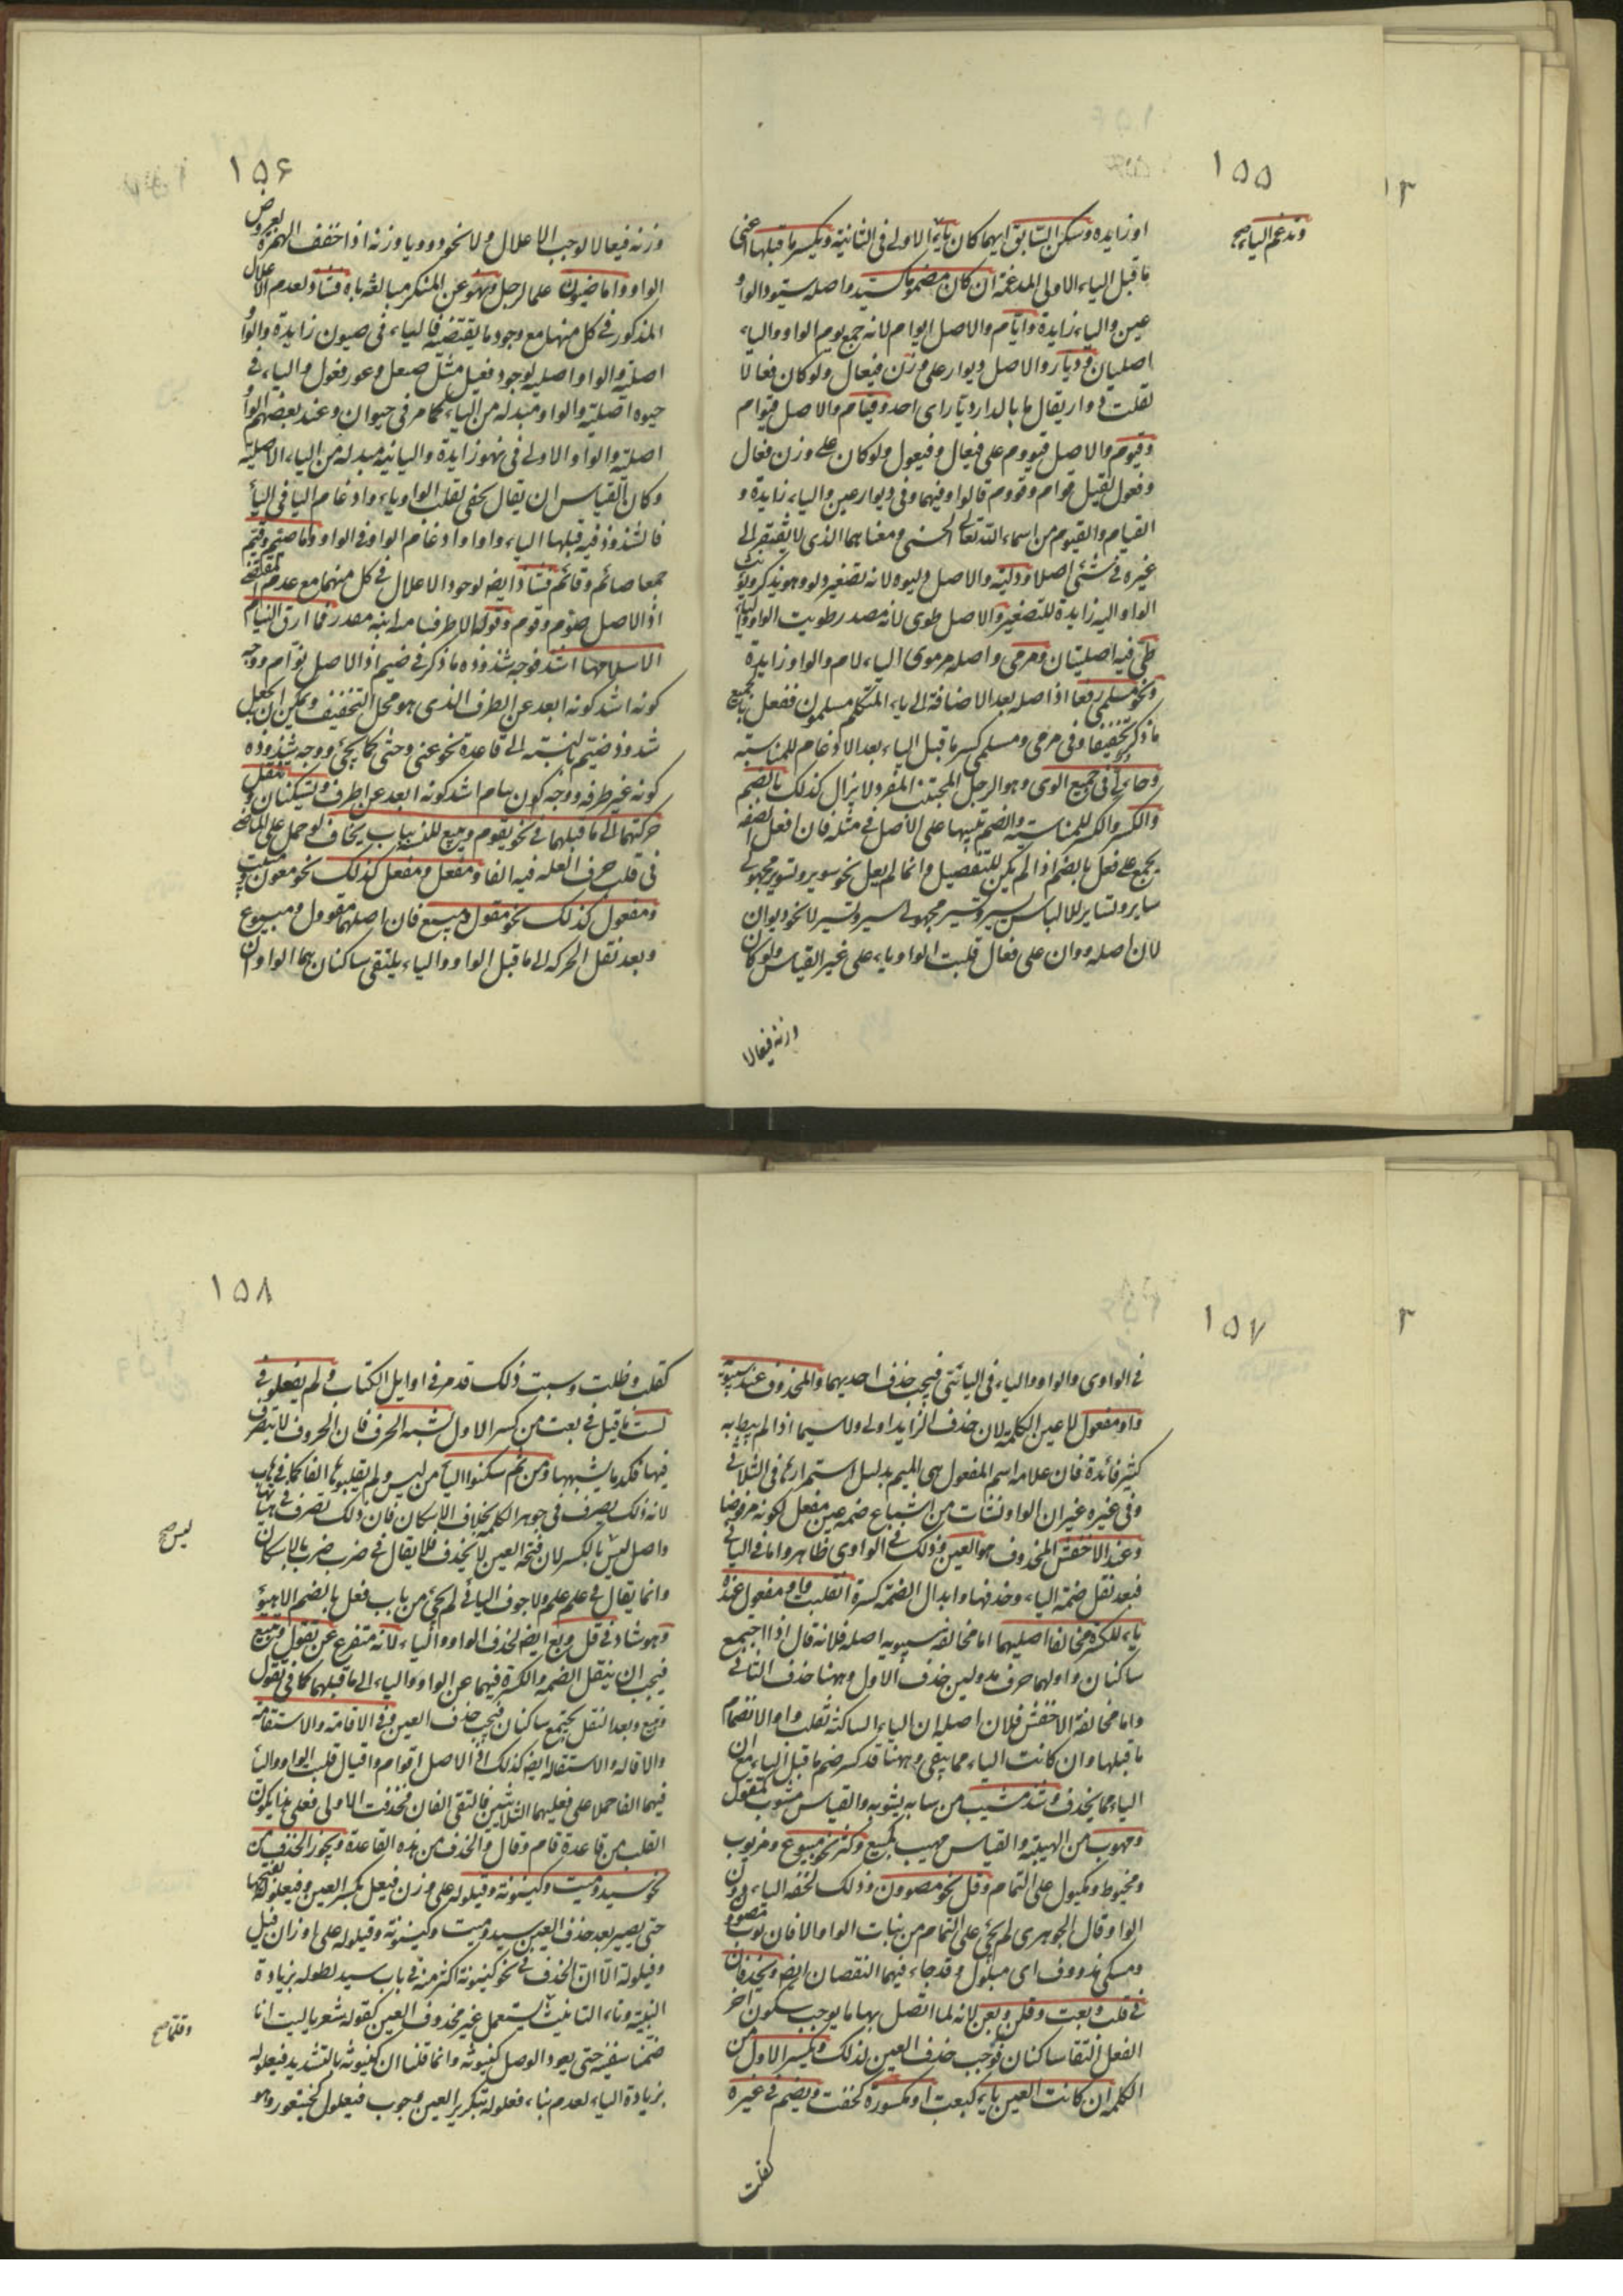 ١٥٥
او زايده وسكن السابق ايهما كان ياء الاولى فى الثانية ويكسر ما قبلها اعنى
وتدغم الياء صح
ما قبل الياء الاولى المدغمة ان كان مضموما كسيد واصله سيود الواو
عين والياء زايدة وايام والاصل ايوام لانه جمع يوم الواو والياء
اصليان وديار والاصل ديوار على وزن فيعال ولو كان فعالا
لقلت دوار يقال ما بالدار ديار اى احد وقيام والاصل قيوام
وقيوم والاصل قيووم على فيعال وفيعول ولو كان على وزن فعال
وفعول لقيل قوام وقووم قالواو فيهما وفى ديوار عين والياء زايدة و
القيام والقيوم من اسماء الله تعالى الحسنى ومعناهما الذى لا يفتقر الى
غيره فى شئ اصلا ودلية والاصل دليوه لانه تصغير دلو وهو يذكر ويؤنث
الواو اليه زايدة للتصغير والاصل طوى لانه مصدر طويت الواو والياء
طى فيه اصليتان ومرمى واصله مرموى الياء لام والواو زايدة
ونحو مسلمى رفعا اذ اصله بعد الاضافة الى ياء المتكلم مسلمون ففعل بالجميع
ما ذكر تخفيفا وفى مرمى ومسلمى كسر ما قبل الياء بعد الادغام للمناسبة
وجاء لى فى جميع الوى وهو الرجل المجتنب المفرد لا يزال كذلك بالضم
والكسر والكسر للمناسبة والضم تنبيها على الاصل فى مثله فان افعل الصفة
يجمع على فعل بالضم اذا لم يكن للتفضيل وانما لم يعل نحو سوير وتسوير مجهولى
ساير وتساير للالباس بسير وتسير مجهولى سير وتسير لا نحو ديوان
لان اصله دوان على فعال قلبت الواو ياء على غير القياس ولو كان
وزنه فيعالا
١٥۶
وزنه فيعالا لوجب الاعلال ولا نحو رويا وزنه اذا خفف الهمزة لعروض
الواو واما ضيون علما لرجل ونهو عن المنكر مبالغة ناه فشاذ لعدم الاعلال
المذكور فى كل منهما مع وجود ما يقتضيه فالياء فى ضيون زايدة والواو
اصلية والواو اصلية لوجود فعيل مثل صيعل وعور فعول والياء فى
حيوه اصلية والواو مبدله من الياء كما مر فى حيوان وعند بعضهم الواو
اصلية والواو الاولى فى نهو زايدة والثانية مبدله من الياء الاصلية
وكان القياس ان يقال بحى لقلب الواو ياء وادغام اليا فى اليأ
فالشذوذ فيه قبلها الياء واوا وادغام الواو فى الواو واما صيم وقيم
جمعا صائم وقائم فشاذ ايضا لوجود الاعلال فى كل منهما مع عدم المقتضى
اذ الاصل صوم وقوم وقوله الا طرقتنا مية ابنة منذر فما ارق النيام
الا سلامها اشذ فوجه شذوذه ما ذكر فى صيم اذ الاصل نوام ووجه
كونه اشد كونه ابعد عن الطرف الذى هو محل التخفيف ويمكن ان يجعل
شذوذ صيم بالنسبة الى قاعدة نحو عتى وجثى كما يجئ ووجه شذوذه
كونه غير طرفه ووجه كون نيام اشد كونه ابعد عن طرف وتسكنان وتنقل
حركتهما الى ما قبلهما فى نحو يقوم ويبيع للبس بباب يخاف لو حمل على الماضى
فى قلب حرف العله فيه الفا ومفعل ومفعل كذلك نحو معون ومبيت
ومفعول كذلك نحو مقول ومبيع فان اصلهما مقوول ومبيوع
وبعد نقل الحركة الى ما قبل الواو والياء يلتقى ساكنان هما الواوان
١٥٧
فى الواوى والواو والياء فى اليائى فيجب حذف احديهما والمحذوف عند سيبويه
واو مفعول لا عين الكلمة لان حذف الزايد اولى ولا سيما اذا لم يبط به
كثير فائدة فان علامة اسم المفعول هى الميم بدليل استمرارها فى الثلاثى
وفى غيره غير ان الواو نشأت من اشباع ضمه عين مفعل لكونه مرفوضا
وعند الاخفش المحذوف هو العين وذلك فى الواوى ظاهر واما فى اليائى
فبعد نقل ضمة الياء وحذفها وابدال الضمة كسرة انقلبت واو مفعول عنده
ياء للكسرة فخالفا اصليهما اما مخالفة سيبويه اصله فلانه قال اذا اجتمع
ساكنان واولهما حرف مد ولين حذف الاول وههنا حذف الثانى
واما مخالفة الاخفش فلان اصله ان الياء الساكنة تقلب واوا لانضمام
ما قبلها وان كانت الياء مما يبقى وههنا قد كسر ضم ما قبل الياء مع ان
الياء مما يحذف وشذ مشيب من شابه يشوبه والقياس مشوب كمقول
ومهوب من الهيبة والقياس مهيب كمبيع وكثر نحو مبيوع ومزيوت
ومخيوط ومكيول على التمام وقل نحو مصوون وذلك لخفه الياء دون
الواو قال الجوهرى لم يجئ على التمام من بنات الواو الا فان ثوب مصوون
ومسك مدووف اى مبلول وقد جاء فيهما النقصان ايضا ويحذفان
فى قلت وبعت وقلن وبعن لانه لما اتصل بهما ما يوجب سكون آخر
الفعل التقا ساكنان فوجب حذف العين لذلك ويكسر الاول من
الكلمة ان كانت العين ياء كبعت او مكسورة كخفت ويضم فى غيره
كقلت
١٥٨
كقلت وطلت وسبب ذلك قد مر فى اوايل الكتاب ولم يفعلوه فى
لست ما قيل فى بعت من كسر الاول لشبه الحرف فان الحروف لا يتصرف
فيها فكذا ما يشبهها ومن ثم سكنوا اليأ من ليس ولم يقلبوها الفا كما فى هاب
لانه ذلك تصرف فى جوهر الكلمة بخلاف الاسكان فان ذلك تصرف فى هيأتها
ليس صح
واصل ليس بالكسر لان فتحة العين لا يحذف فلا يقال فى ضرب ضرب بالاسكان
وانما يقال فى علم علم ولاجوف اليائى لم يجئ من باب فعل بالضم الا هيؤ
وهو شاذ فى قل وبع ايضا لحذف الواو والياء لانه متفرع عن تقول وتبيع
فيجب ان ينقل الضمه والكسرة فيهما عن الواو والياء الى ما قبلهما كما فى تقول
وتبيع وبعد النقل يجتمع ساكنان فيجب حذف العين وفى الاقامة والاستقامة
والاقاله والاستقاله ايضا كذلك اذ الاصل اقوام واقيال قلبت الواو واليأ
فيهما الفا حملا على فعليهما الثلاثيين فالتقى الفان فحذفت الاولى فعلى هذا يكون
القلب من قاعدة قام وقال والحذف من هذه القاعدة ويجوز الحذف من
نحو سيد وميت وكينونة وقيلوله على وزن فيعل بكسر العين وفيعلوله بفتحها
حتى يصير بعد حذف العين سيد وميت وكينونة وقيلوله على اوزان فيل
وفيلولة الا ان الحذف فى نحو كينونة اكثر منه فى باب سيد لطوله بزيادة
البنية وتاء التانيث يستعمل غير محذوف العين كقوله شعر يا ليت انا
وقلتا صح
ضمنا سفينه حتى يعود الوصل كينونه وانما قلنا ان كينونه بالتشديد فيعلوله
بزيادة الياء لعدم بناء فعلوله بتكرير العين وجوب فيعلول كخيتعور وهو